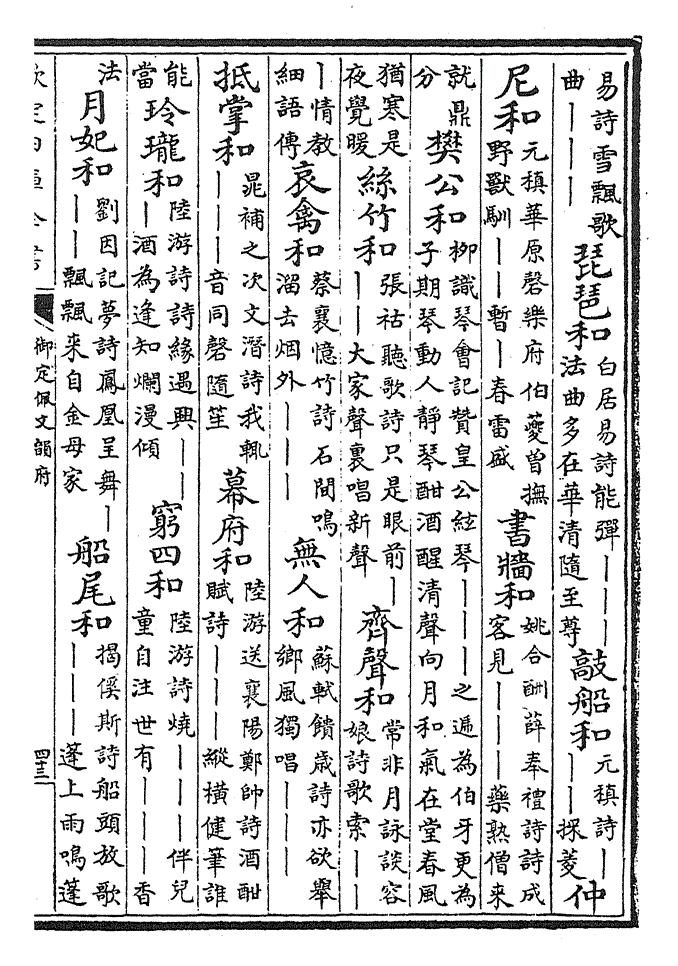 易詩雪飄歌曲｜｜｜琵琶和白居易詩能彈｜｜｜法曲多在華清隨至尊敲船和元稹詩｜｜｜採菱仲
尼和元稹華原磬樂府伯夔曾撫野獸馴｜｜暫｜春雷盛書牆和姚合酬薛奉禮詩詩成客見｜｜｜藥熟僧来
就鼎分樊公和柳識琴會記贊皇公絃琴｜｜｜之遍為伯牙更為子期琴動人靜琴酣酒醒清聲向月和氣在堂春風
猶寒是夜覺暖絲竹和張祜聽歌詩只是眼前｜｜｜大家聲裏唱新聲齊聲和常非月詠談容娘詩歌索｜｜
｜情教細語傳哀禽和蔡襄憶竹詩石間鳴溜去烟外｜｜｜無人和蘇軾饋歲詩亦欲舉鄉風獨唱｜｜｜
抵掌和晁補之次文潛詩我輒｜｜｜音同磬隨笙幕府和陸游送襄陽鄭帥詩酒酣賦詩｜｜｜縱橫健筆誰
能當玲瓏和陸游詩詩緣遇興｜｜｜酒為逢知爛漫傾窮四和陸游詩燒｜｜｜伴兒童自注世有｜｜｜香
法月妃和劉因記夢詩鳳凰呈舞｜｜｜飄飄来自金母家船尾和揭傒斯詩船頭放歌｜｜｜蓬上雨鳴蓬
欽定四庫全書
御定佩文韻府
四三